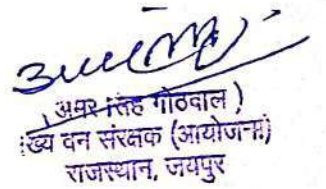 अमर सिंह गोठवाल )
ख्य वन संरक्षक (आयोजना)
राजस्थान, जयपुर